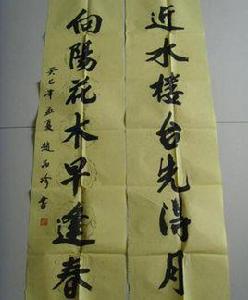 近水樓台先得月
向陽花木早逢春